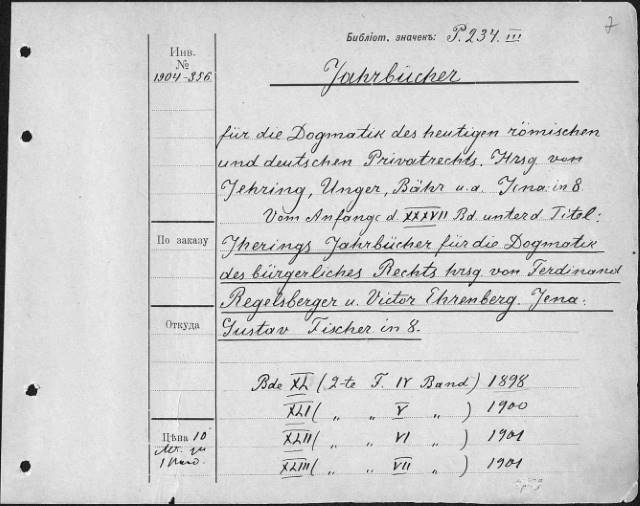 7
Библіот. значекъ: P.237.III
Инв.
№
1904-356.
Jahrbücher
für die Dogmatik des heutigen römischen
und deutschen Privatrechts. Hrsg von
Jehring, Unger, Bähr u.a. Jena. in 8.
Vom Anfange d. XXXVII Bd. unter d. Titel:
По заказу
Jherings Jahrbücher für die Dogmatik
des bürgerliches Rechts hrsg. von Ferdinand
Regelsberger u. Victor Ehrenberg. Jena.
Откуда
Gustav Fischer in 8.
Bde XL (2-te F. IV Band) 1898
XLI ( „ „ V „ ) 1900
Цѣна 10
XLII ( „ „ VI „ ) 1901
XLIII ( „ „ VII „ ) 1901